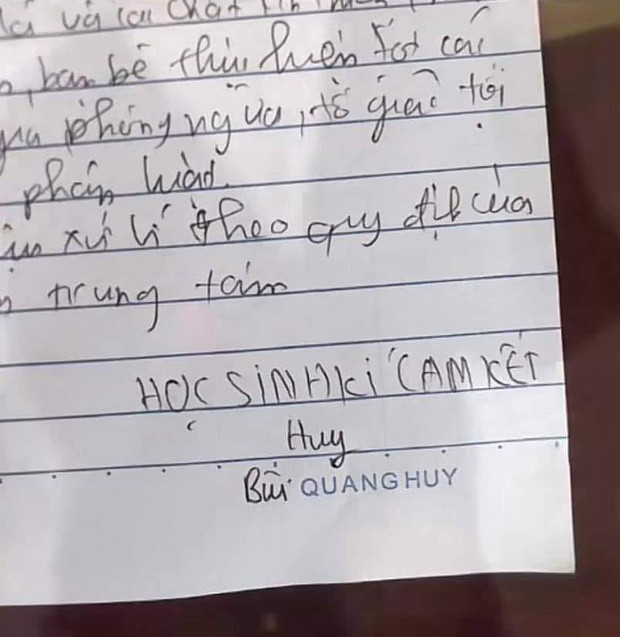 và các chất
, bạn bè thực hiện tốt các
phòng ngừa, tố giác tội
phản hiệu.
xử lí theo quy định của
trung tâm
HỌC SINH KÍ CAM KẾT
Huy
Bùi QUANG HUY